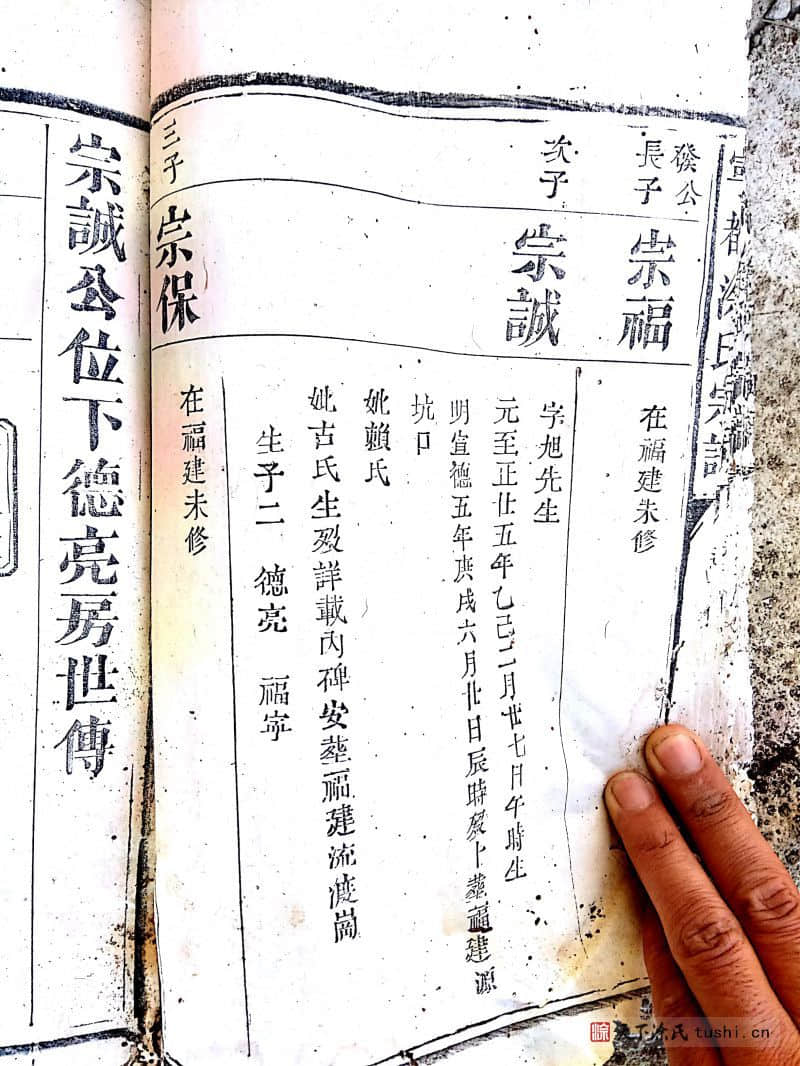 發公
長子
宗福
在福建未修
次子
宗誠
字旭先生
元至正廿五年乙己二月廿七日午時生
明宣德五年庚戌六月廿日辰時歿卜葬福建源
坑口
妣賴氏
妣古氏生歿詳載內碑安葬福建流渡崗
生子二 德亮 福寧
三子
宗保
在福建未修
宗誠公位下德亮房世傳
天下涂氏 tushi.cn